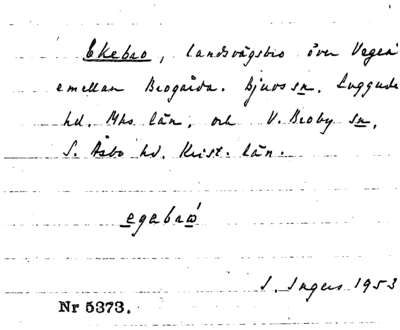 Ekebro, landsvägsbro över Vegeå
emellan Brogårda. Bjuvs sn. Luggude
hd. Mhs. län, och V. Broby sn,
S. Åsbo hd. Krist. län.
egabrω̄́
I. Ingers 1953
Nr 5373.